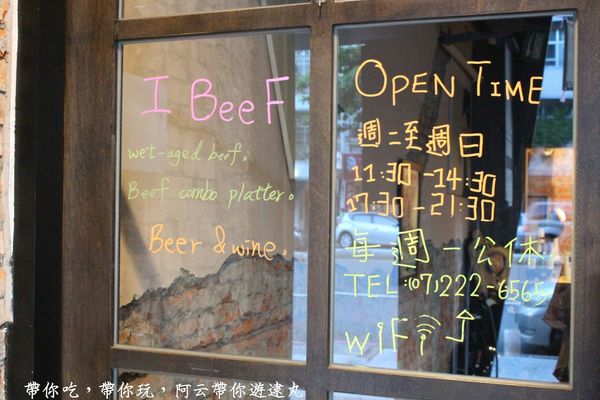 I BeeF
wet-aged beef。
Beef combo platter。
Beer & wine。
OPEN TIME
週二至週日
11:30 -14:30
17:30 - 21:30
每週一公休
TEL:(07)222-6565
WiFi
帶你吃,帶你玩,阿云帶你遊逑丸